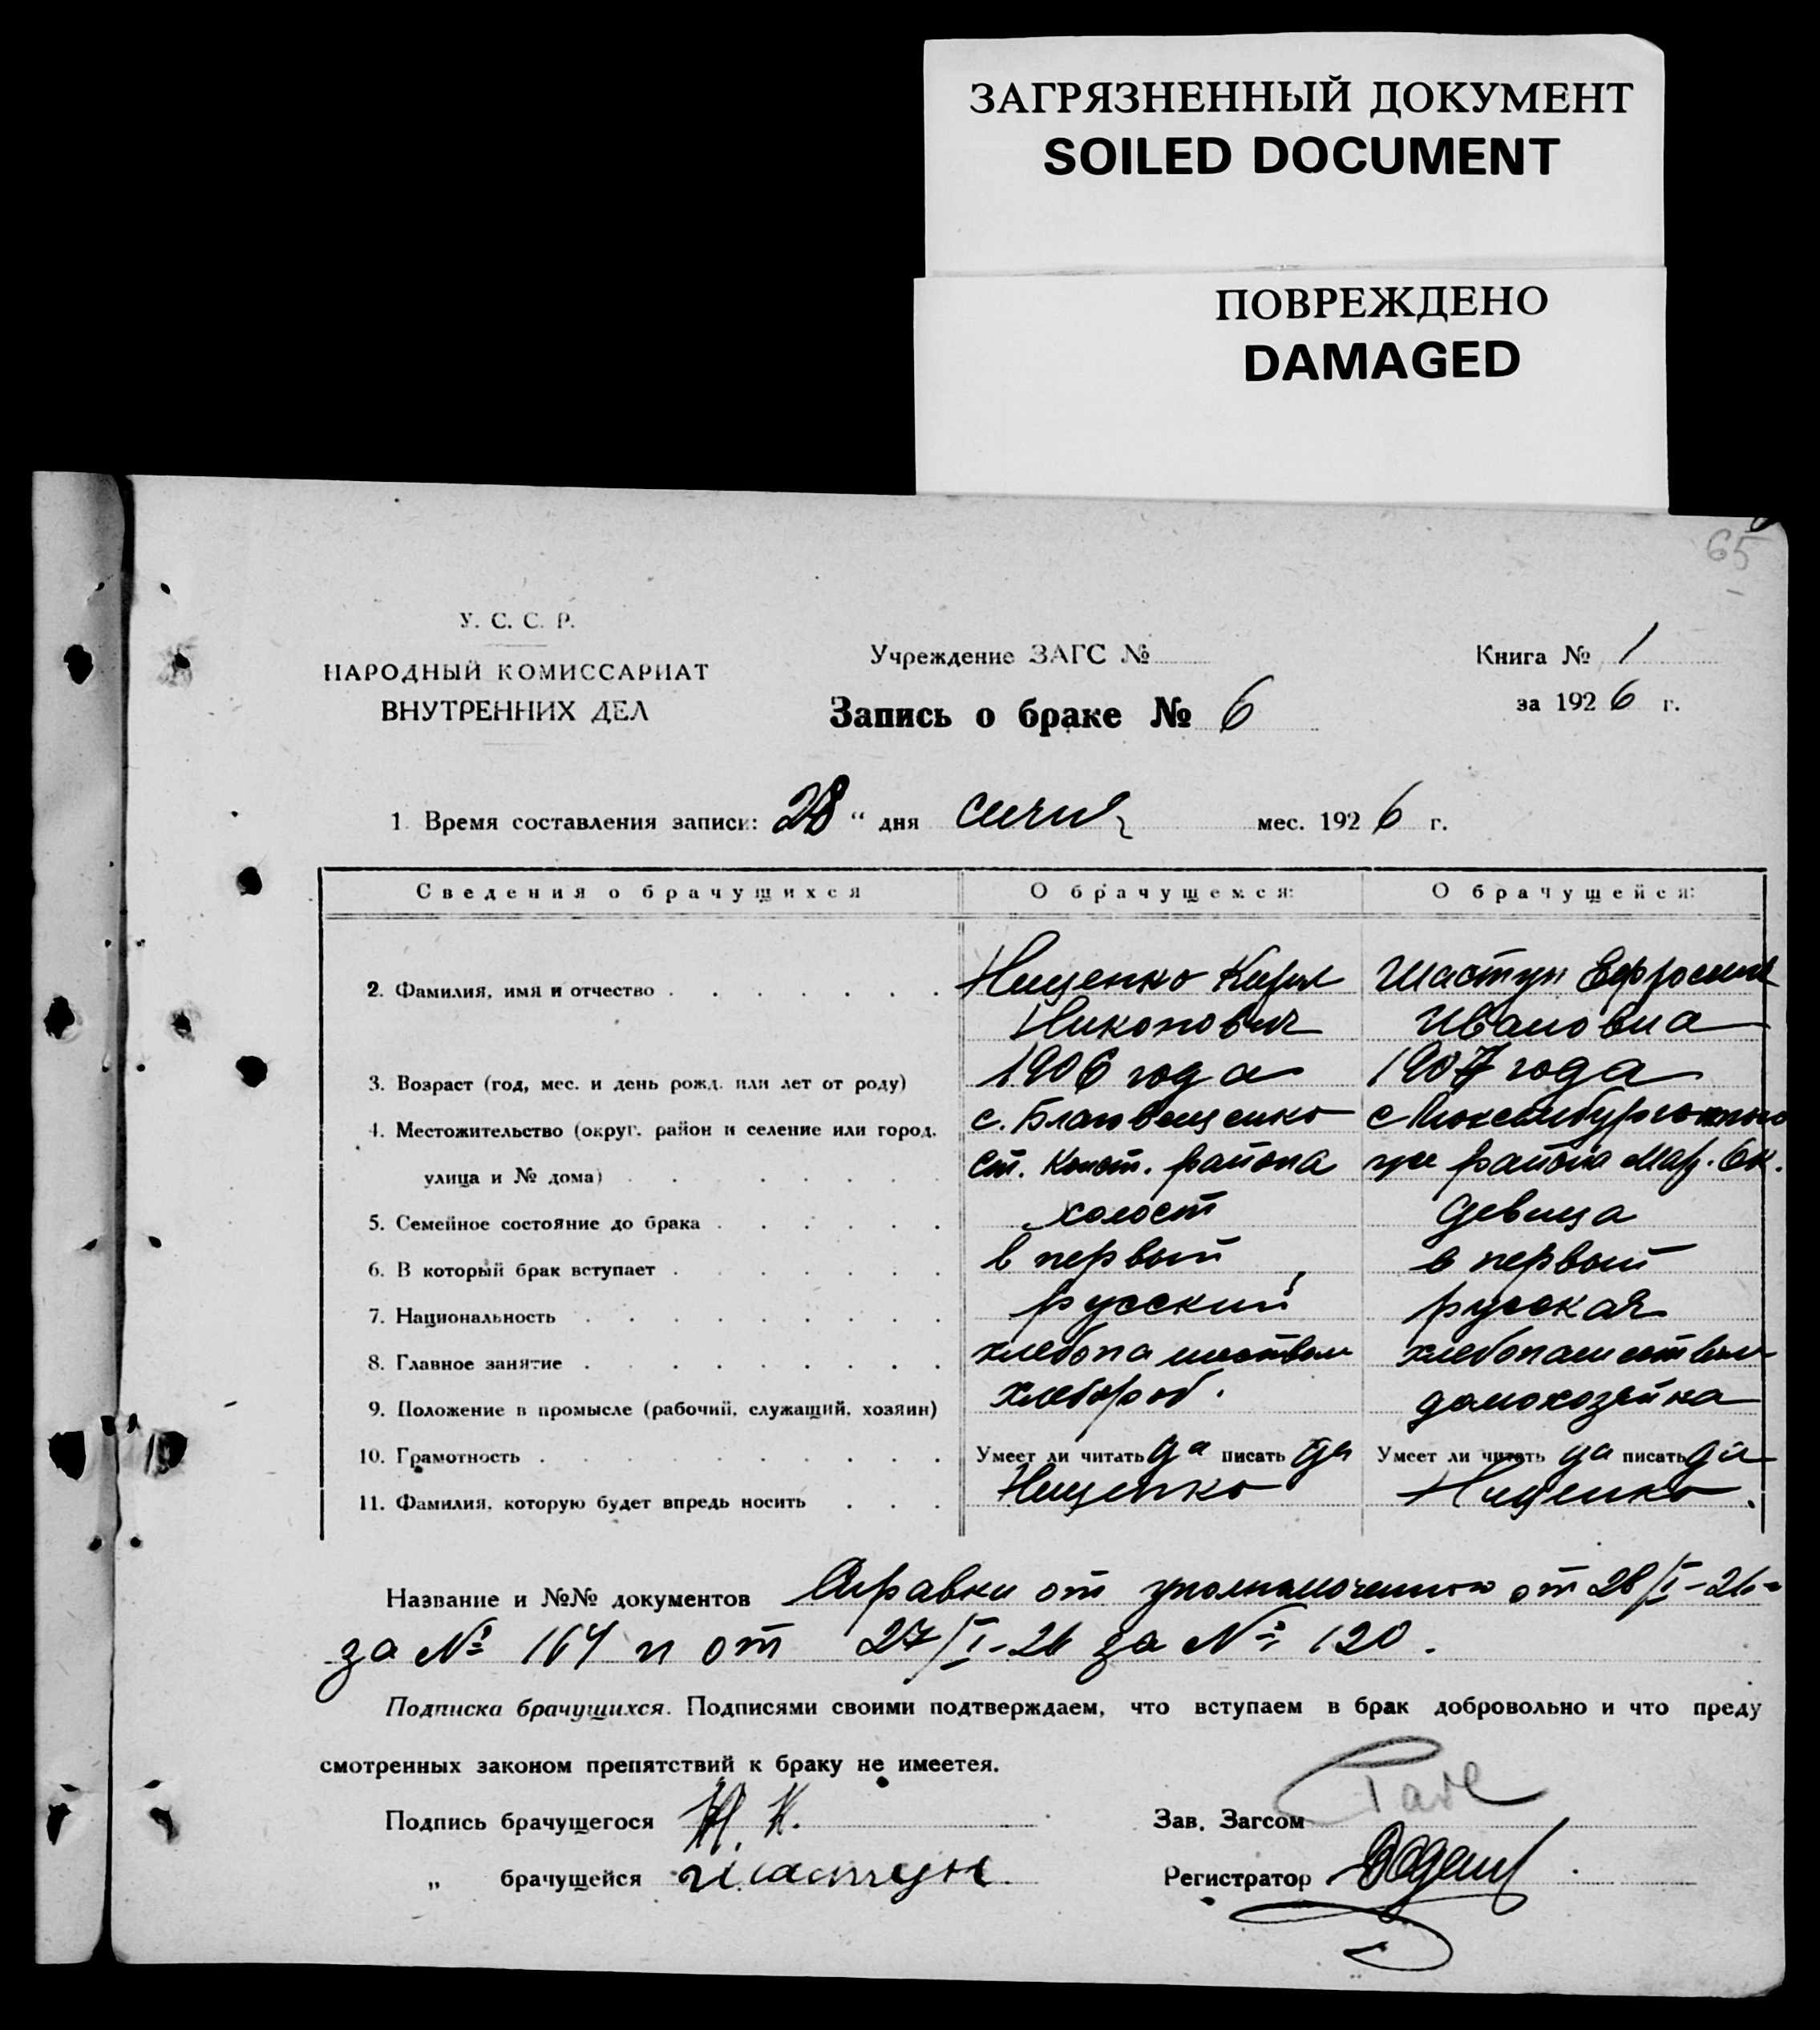 ЗАГРЯЗНЕННЫЙ ДОКУМЕНТ
SOILED DOCUMENT
ПОВРЕЖДЕНО
DAMAGED
65
У. С. С. Р.
НАРОДНЫЙ КОМИССАРИАТ
ВНУТРЕННИХ ДЕЛ
Учреждение ЗАГС №
Запись о браке № 6
Книга № 1
за 1926 г.
1. Время составления записи: 28 “ дня січня мес. 1926 г.
Сведения о брачущихся О брачущемся: О брачущейся:
2. Фамилия, имя и отчество Нищенко Кирил Шастун Ефросиния
Никонович Ивановна
3. Возраст (год, мес. и день рожд. или лет от роду) 1906 года 1907 года
4. Местожительство (округ, район и селение или город, с. Благовещенко с
улица и № дома) Ст. Конст. района района Мар. Ок.
5. Семейное состояние до брака холост девица
6. В который брак вступает в первый в первый
7. Национальность русский русская
8. Главное занятие хлебопашество
9. Положение в промысле (рабочий, служащий, хозяин) хлебороб. домохозяйка
10. Грамотность Умеет ли читать да писать да Умеет ли читать да писать да
11. Фамилия, которую будет впредь носить Нищенко Нищенко.
Название и №№ документов Справки от уполномоченного от 28/I-26
за № 164 и от 27/I-26 за № 120.
Подписка брачущихся. Подписями своими подтверждаем, что вступаем в брак добровольно и что преду
смотренных законом препятствий к браку не имеетея.
Подпись брачущегося Н. К. Зав. Загсом
„ брачущейся Шастун. Регистратор